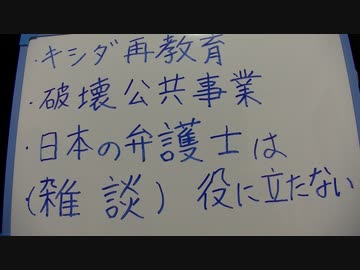 ・キシダ再教育
・破壊公共事業
・日本の弁護士は
(雑談) 役に立たない